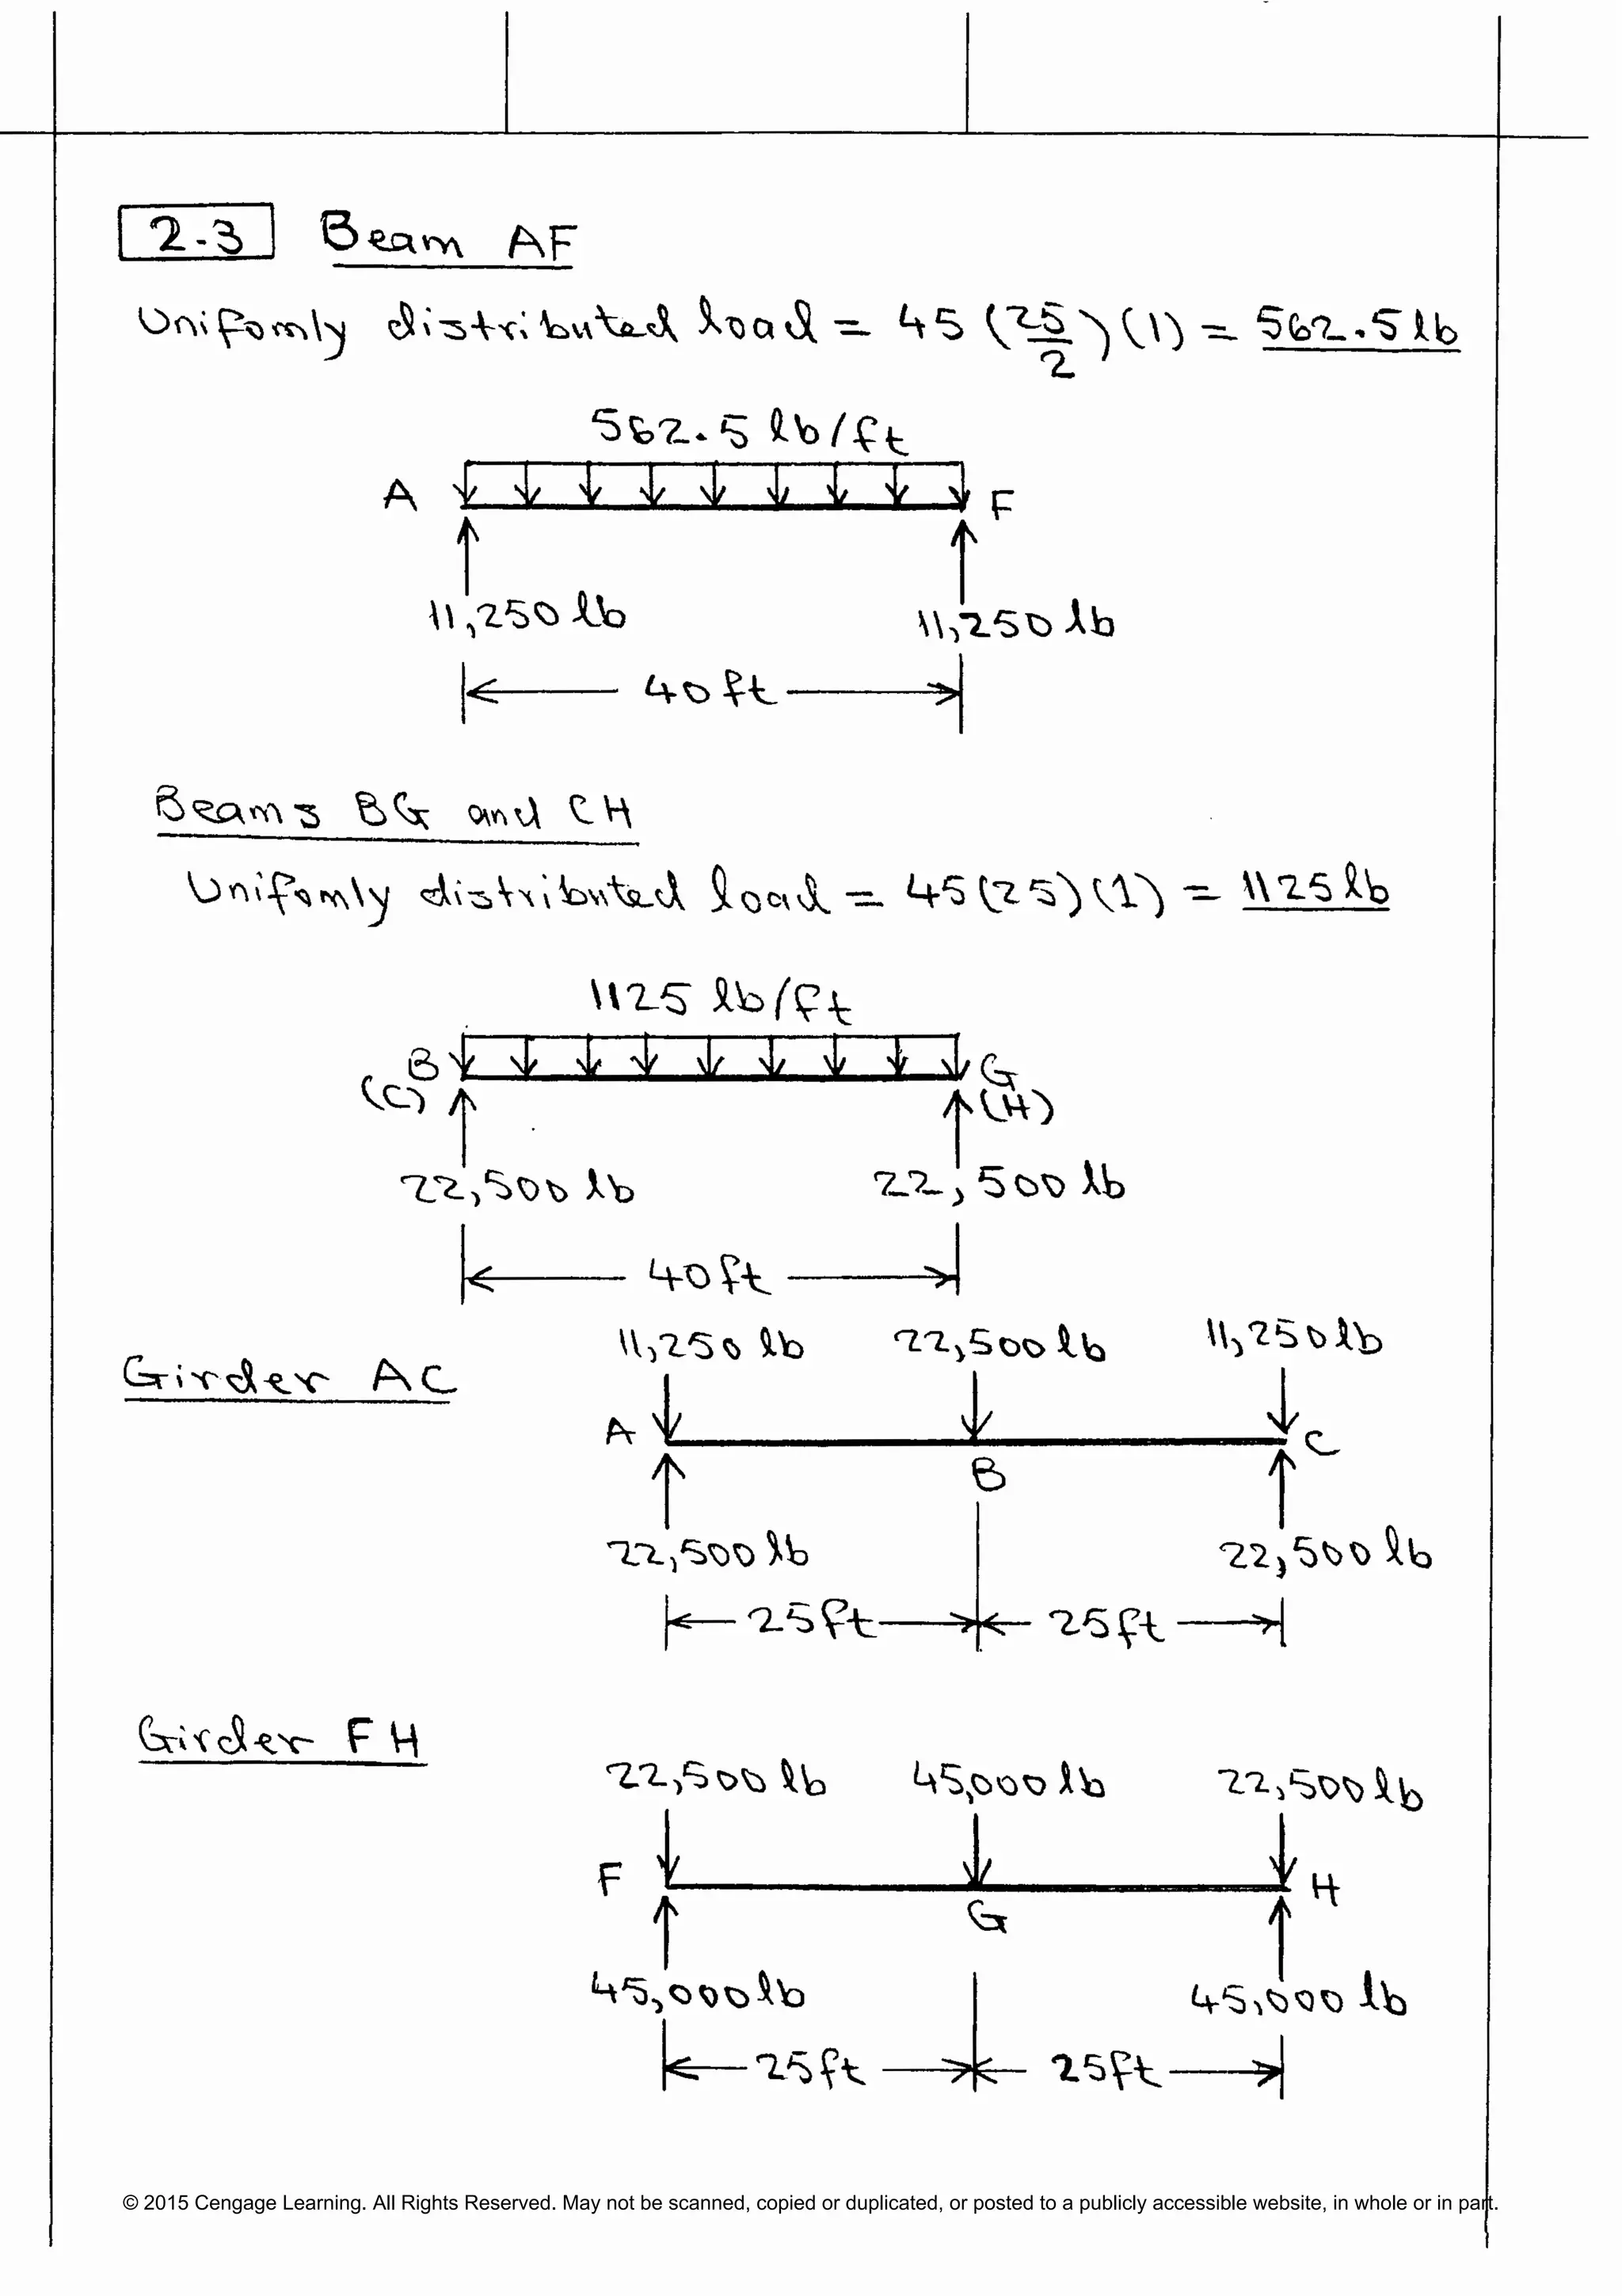 2.3 Beam AF
Unifomly distributed load = 45 (25/2) (1) = 562.5 lb
562.5 lb/ft
A F
11,250 lb 11,250 lb
40 ft
Beams BG and CH
Unifomly distributed load = 45 (25) (1) = 1125 lb
1125 lb/ft
B G
(C) (H)
22,500 lb 22,500 lb
40 ft
11,250 lb 22,500 lb 11,250 lb
Girder AC
A C
B
22,500 lb 22,500 lb
25 ft 25 ft
Girder FH
22,500 lb 45,000 lb 22,500 lb
F H
G
45,000 lb 45,000 lb
25 ft 25 ft
© 2015 Cengage Learning. All Rights Reserved. May not be scanned, copied or duplicated, or posted to a publicly accessible website, in whole or in part.